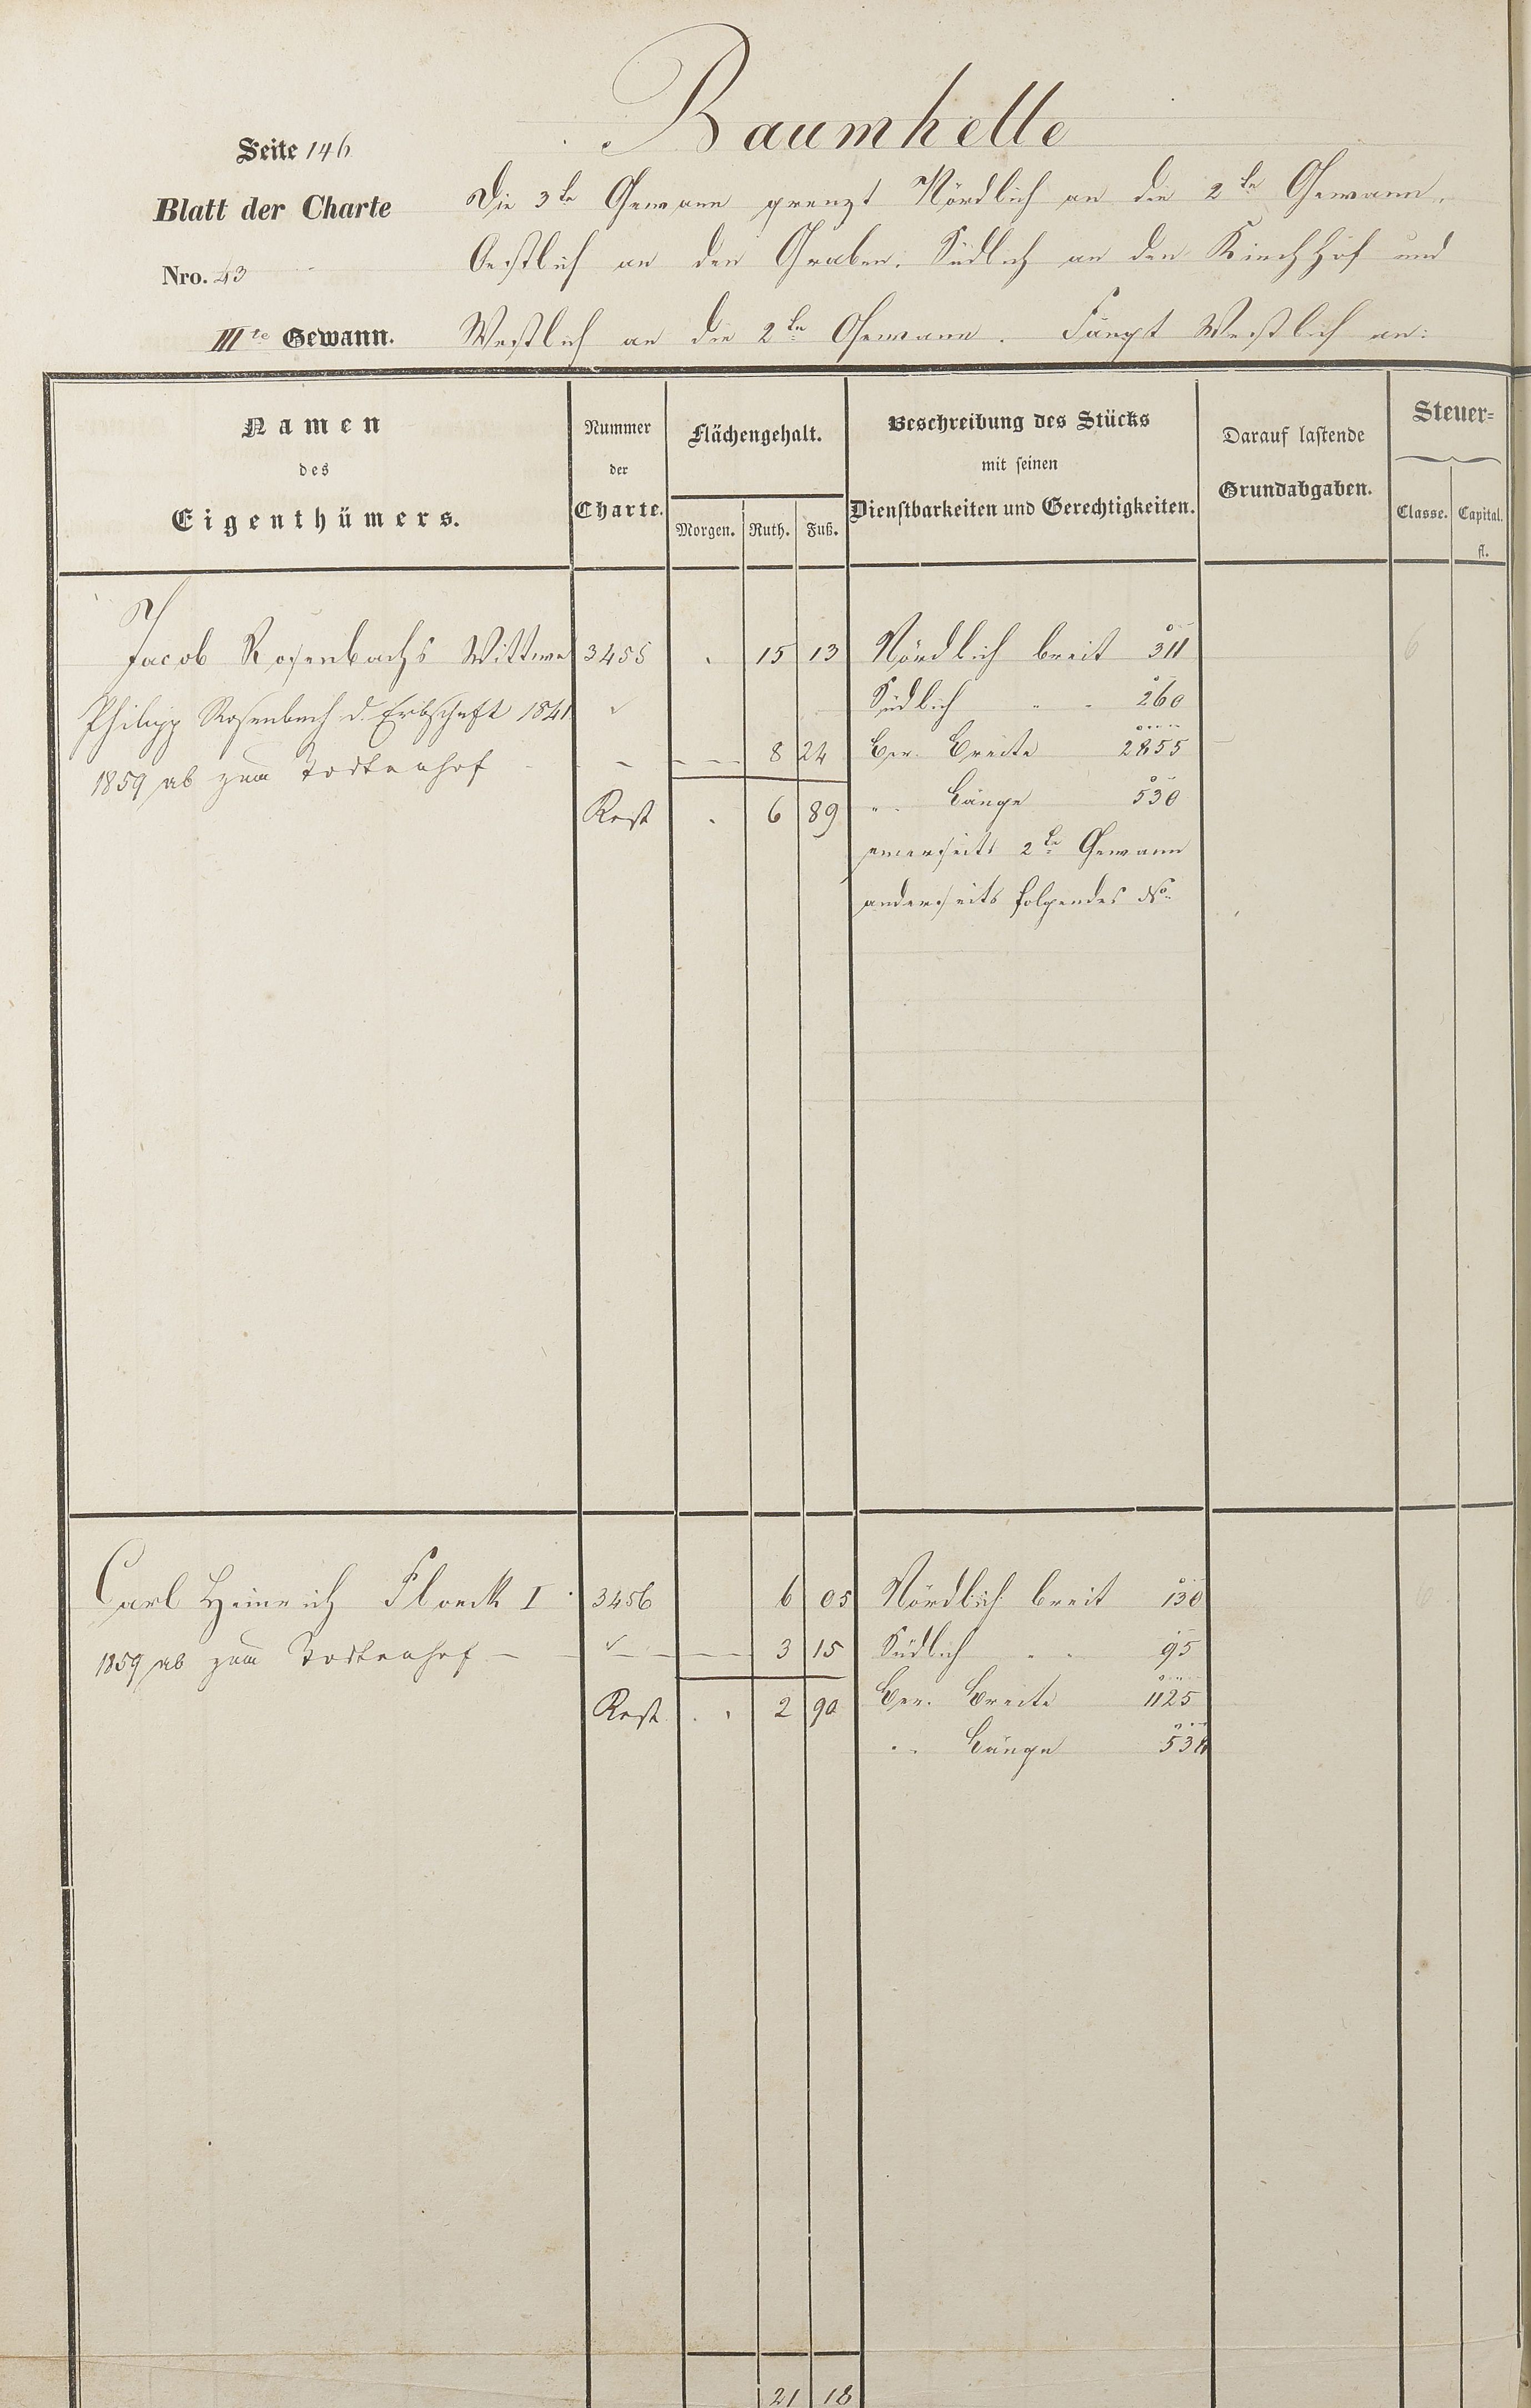 Baumhelle
Seite 146
Blatt der Charte
Nro. 43
IIIte Gewann.
Die 3te Gewann grenzt Nördlich an die 2te Gewann,
Oestlich an den Graben, Südlich an den Kirchhof und
Westlich an die 2te Gewann. Fängt Westlich an:
Namen
des
Eigenthümers.
Nummer
der
Charte.
Flächengehalt.
Morgen. Ruth. Fuß.
Beschreibung des Stücks
mit seinen
Dienstbarkeiten und Gerechtigkeiten.
Darauf lastende
Grundabgaben.
Steuer-
Classe. Capital.
fl.
Jacob Rosenbachs Wittwe 3455 15 13 Nördlich breit 311 6
Philipp Rosenbach d. Erbschaft 1841 Südlich " 260
1859 ab zum Todtenhof 8 24 Ber. Breite 2855
Rest 6 89 " Länge 530
einerseits 2te Gewann
anderseits folgendes No
Carl Heinrich Flock I 3456 6 05 Nördlich breit 130 6
1859 ab zum Todtenhof 3 15 Südlich " 95
Rest 2 90 Ber. Breite 1125
" Länge 538
21 18